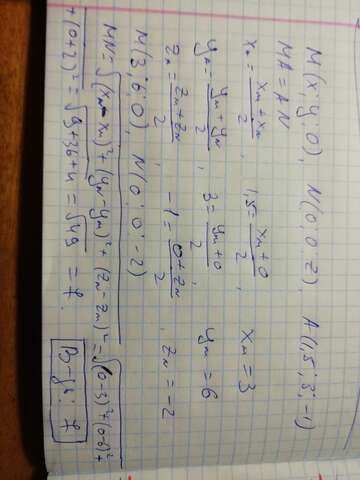 M(x; y; 0), N(0; 0; z), A(1,5; 3; -1)
MA = AN
x_A = (x_M + x_N)/2, 1,5 = (x_M + 0)/2, x_M = 3
y_A = (y_M + y_N)/2, 3 = (y_M + 0)/2, y_M = 6
z_A = (z_M + z_N)/2, -1 = (0 + z_N)/2, z_N = -2
M(3; 6; 0), N(0; 0; -2)
MN = √(x_N - x_M)² + (y_N - y_M)² + (z_N - z_M)² = √(0-3)² + (0-6)² +
+ (0+2)² = √9+36+4 = √49 = 7.
В-дь: 7